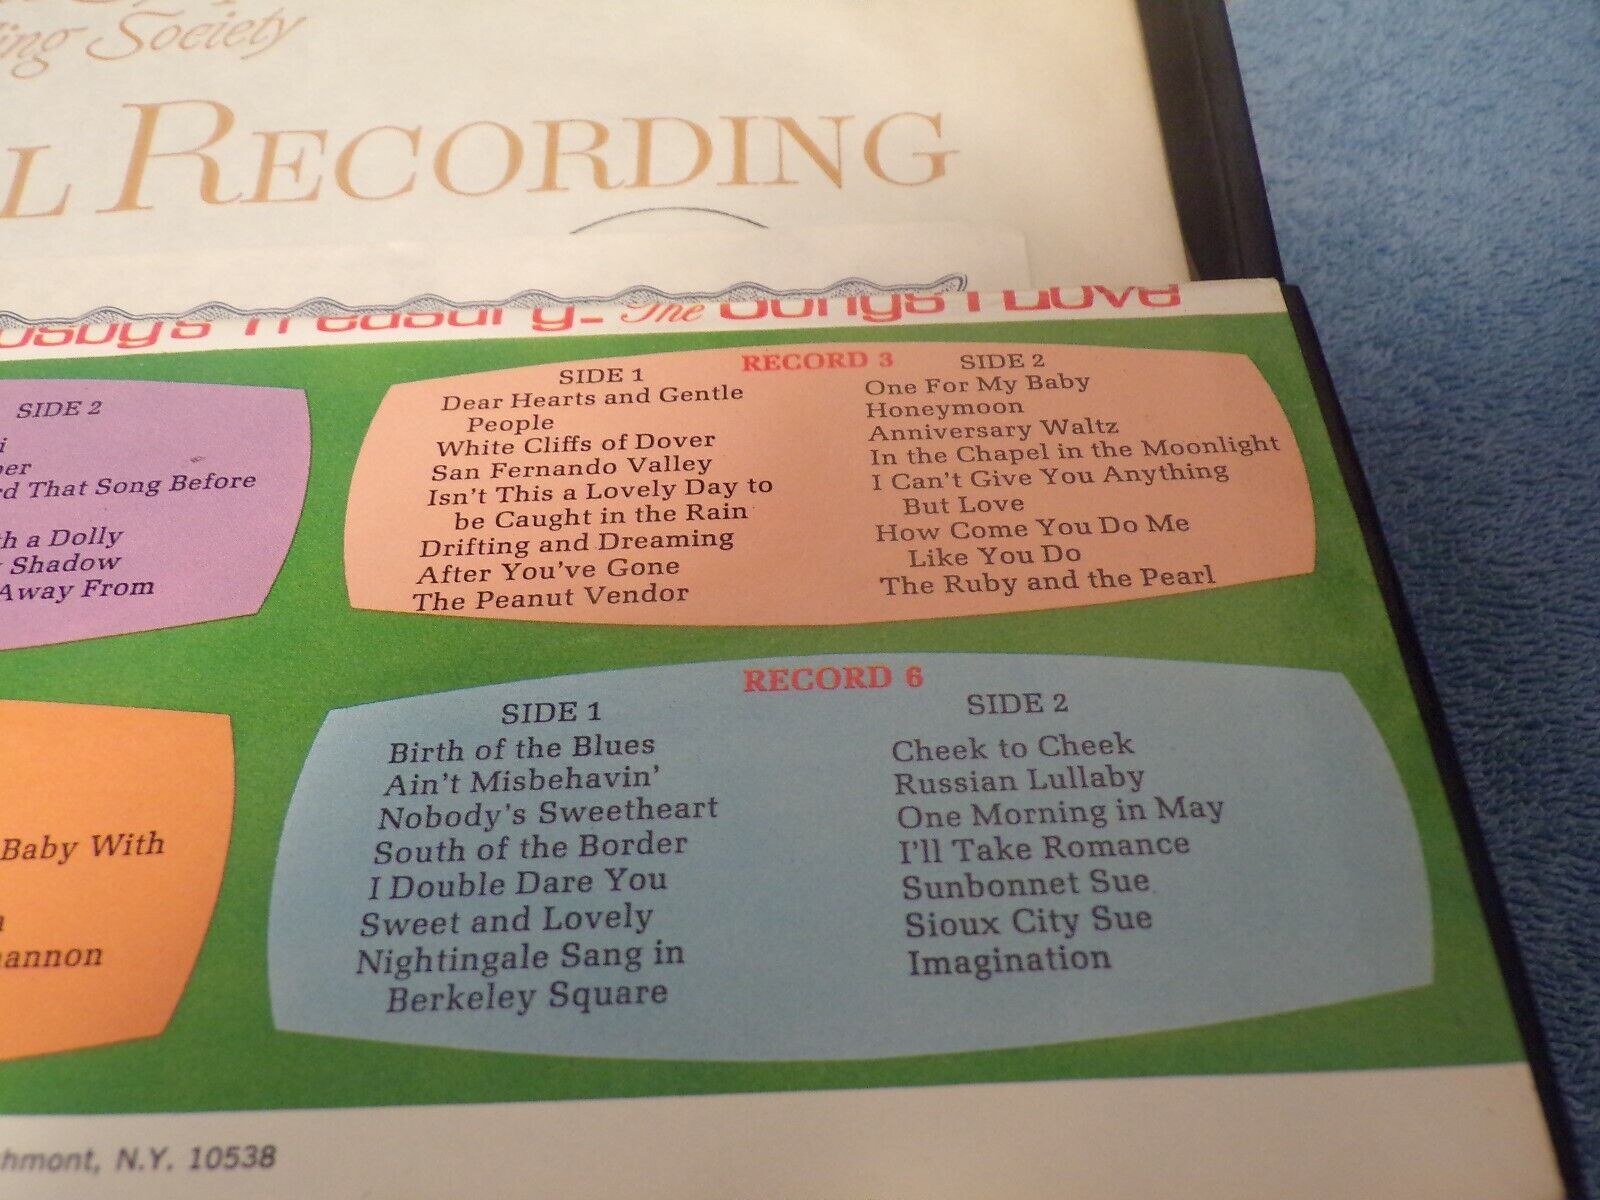 Society
RECORDING
Treasury - The Songs I Love
SIDE 2
That Song Before
a Dolly
Shadow
Away From
RECORD 3
SIDE 1
Dear Hearts and Gentle
People
White Cliffs of Dover
San Fernando Valley
Isn't This a Lovely Day to
be Caught in the Rain
Drifting and Dreaming
After You've Gone
The Peanut Vendor
SIDE 2
One For My Baby
Honeymoon
Anniversary Waltz
In the Chapel in the Moonlight
I Can't Give You Anything
But Love
How Come You Do Me
Like You Do
The Ruby and the Pearl
Baby With
RECORD 6
SIDE 1
Birth of the Blues
Ain't Misbehavin'
Nobody's Sweetheart
South of the Border
I Double Dare You
Sweet and Lovely
Nightingale Sang in
Berkeley Square
SIDE 2
Cheek to Cheek
Russian Lullaby
One Morning in May
I'll Take Romance
Sunbonnet Sue
Sioux City Sue
Imagination
N.Y. 10538